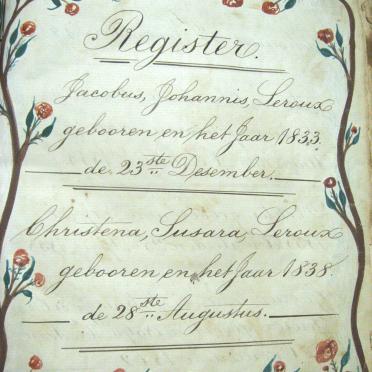 Register.
Jacobus, Johannis, Leroux
gebooren en het Jaar 1833.
de 23ste Desember.
Christena, Susara, Leroux
gebooren en het Jaar 1838.
de 28ste Augustus.